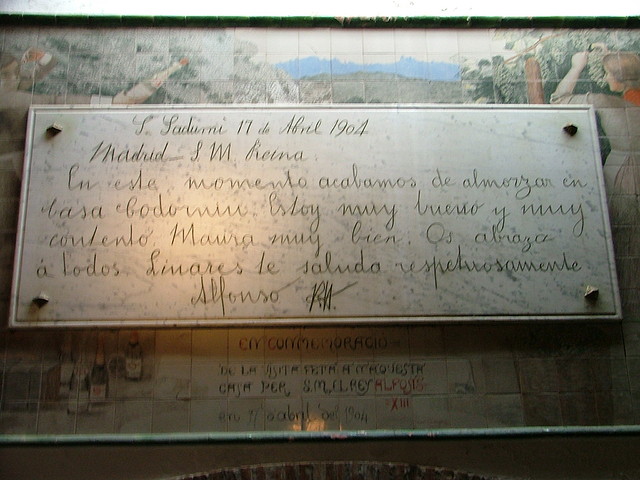 S. Sadurní 17 de Abril 1904
Madrid S M Reina
En este momento acabamos de almorzar en
casa Codorniu. Estoy muy bueno y muy
contento Maura muy bien. Os abraza
á todos. Linares te saluda respetuosamente
Alfonso
EN CONMEMORACIO
DE LA VISITA FETA A AQUESTA
CASA PER S.M. EL REY ALFONS
XIII
en 17 abril del 1904